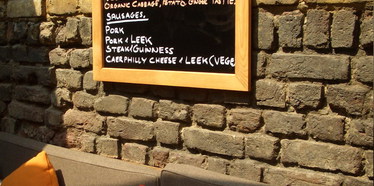 ORGANIC CABBAGE, POTATO
SAUSAGES.
PORK
PORK & LEEK
STEAK/GUINNESS
CAERPHILLY CHEESE & LEEK (VEGE